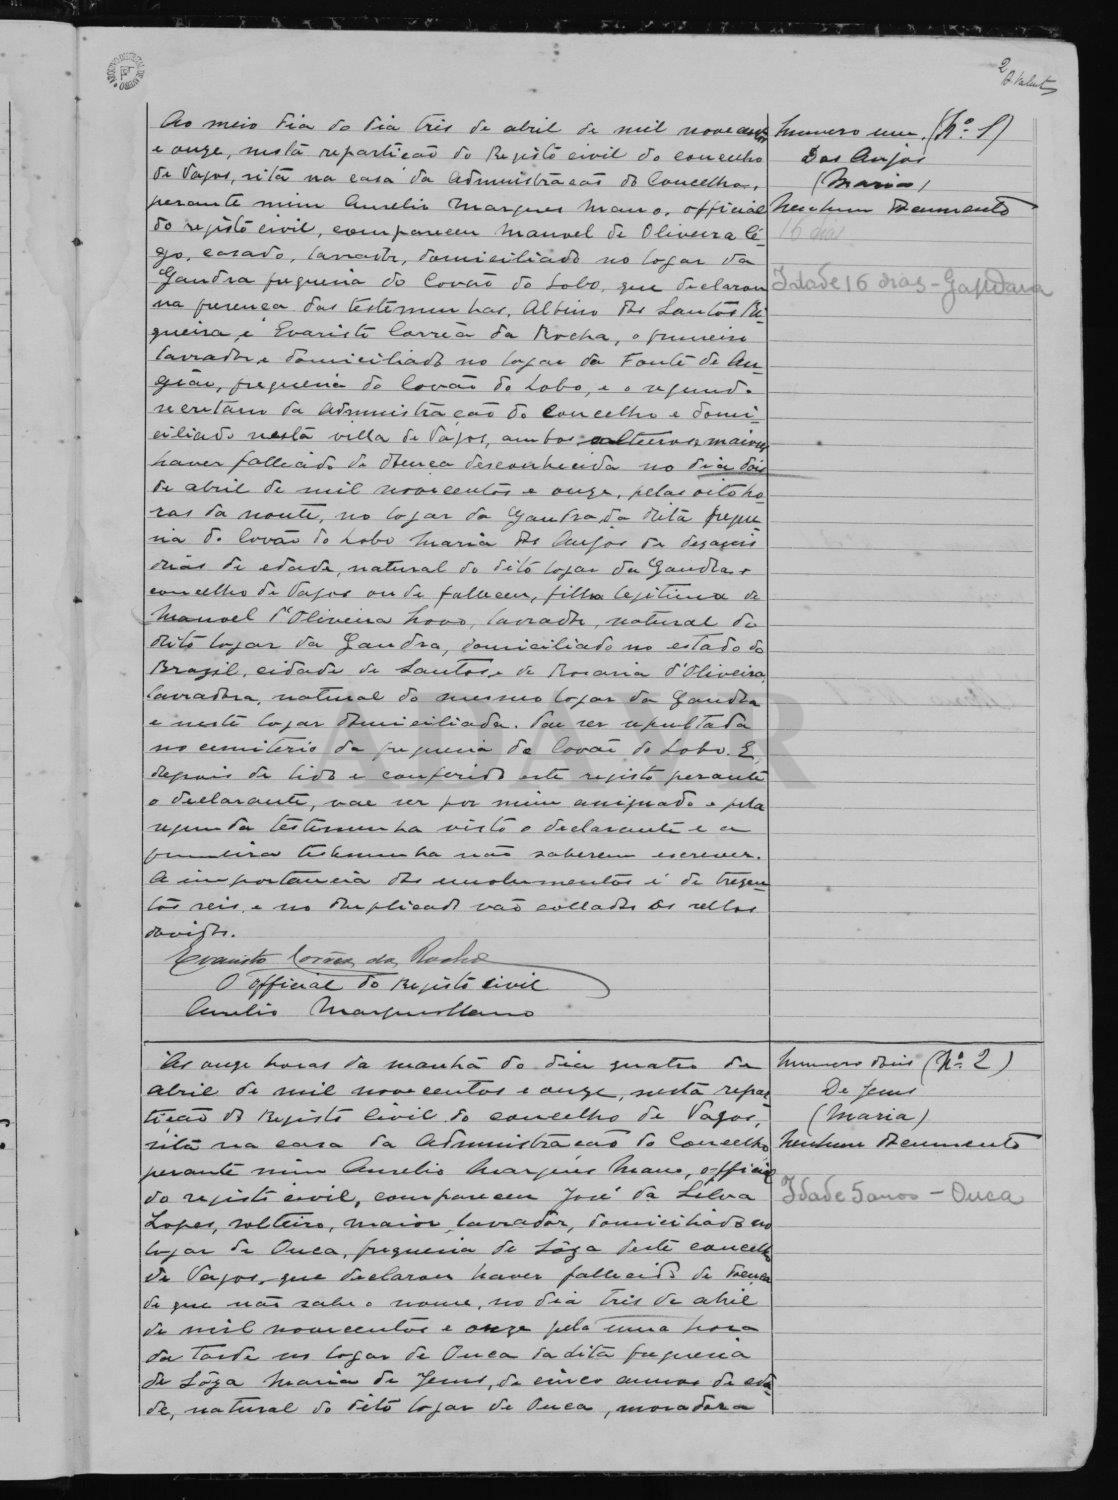 2
Ao meio dia do dia tres de abril de mil novecentos
e onze, nesta repartição do Registo civil do concelho
de Vagos, sita na casa da Administração do Concelho,
perante mim Aurelio Marques Mano, official
do registo civil, compareceu Manoel de Oliveira Cé-
go, casado, lavrador, domiciliado no logar da
Gandra freguesia do Covão do Lobo, que declarou
na presença das testemunhas, Albino dos Santos Ri-
gueira, e Evaristo Corrêa da Rocha, o primeiro
lavrador e domiciliado no logar da Fonte de An-
gião, freguesia do Covão do Lobo, e o segundo
secretario da Administração do Concelho e domi-
ciliado nesta villa de Vagos, ambos solteiros, maiores
haver fallecido de doença desconhecida no dia dois
de abril de mil novecentos e onze, pelas oito ho-
ras da noute, no logar da Gandra, da dita fregue
sia do Covão do Lobo Maria dos Anjos de dezaseis
dias de edade, natural do dito logar da Gandra,
concelho de Vagos onde falleceu, filha legitima de
Manoel d'Oliveira Novo, lavrador, natural do
dito logar da Gandra, domiciliado no estado do
Brazil, cidade de Santos, e de Rosaria d'Oliveira,
lavradora, natural do mesmo logar da Gandra
e neste logar domiciliada. Vae ser sepultada
no cemiterio da freguesia de Covão do Lobo. E,
depois de lido e conferido este registo perante
o declarante, vae ser por mim assignado e pela
segunda testemunha visto o declarante e a
primeira testemunha não saberem escrever.
A importancia dos emolumentos é de trezen
tos reis, e no duplicado vão collados os sellos
devidos.
Evaristo Corrêa da Rocha
O official do Registo civil
Aurelio Marques Mano
Numero um. (Nº. 1)
Dos Anjos
(Maria)
Nenhum documento
16 dias
Idade 16 dias - Gandara
Às onze horas da manhã do dia quatro de
abril de mil novecentos e onze, nesta repar-
tição do Registo Civil do concelho de Vagos,
sita na casa da Administração do Concelho,
perante mim Aurelio Marques Mano, official
do registo civil, compareceu José da Silva
Lopes, solteiro, maior, lavrador, domiciliado no
logar de Ouca, freguesia de Sôza deste concelho
de Vagos, que declarou haver fallecido de doença
de que não sabe o nome, no dia tres de abril
de mil novecentos e onze pela uma hora
da tarde no logar de Ouca da dita freguesia
de Sôza Maria de Jesus, de cinco annos de eda-
de, natural do dito logar de Ouca, moradora
Numero dois (Nº. 2)
De Jesus
(Maria)
Nenhum documento
Idade 5 anos - Ouca
ADAVR